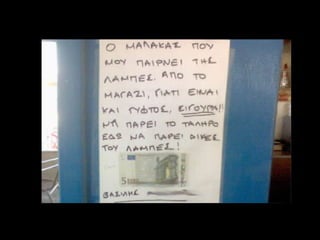 Ο ΜΑΛΑΚΑΣ ΠΟΥ
ΜΟΥ ΠΑΙΡΝΕΙ ΤΗΣ
ΛΑΜΠΕΣ ΑΠΟ ΤΟ
ΜΑΓΑΖΙ, ΓΙΑΤΙ ΕΙΝΑΙ
ΚΑΙ ΓΥΦΤΟΣ, ΣΙΓΟΥΡΑ!!
ΝΑ ΠΑΡΕΙ ΤΟ ΤΑΛΗΡΟ
ΕΔΩ ΝΑ ΠΑΡΕΙ ΔΙΚΕΣ
ΤΟΥ ΛΑΜΠΕΣ!
5 EURO
ΒΑΣΙΛΗΣ